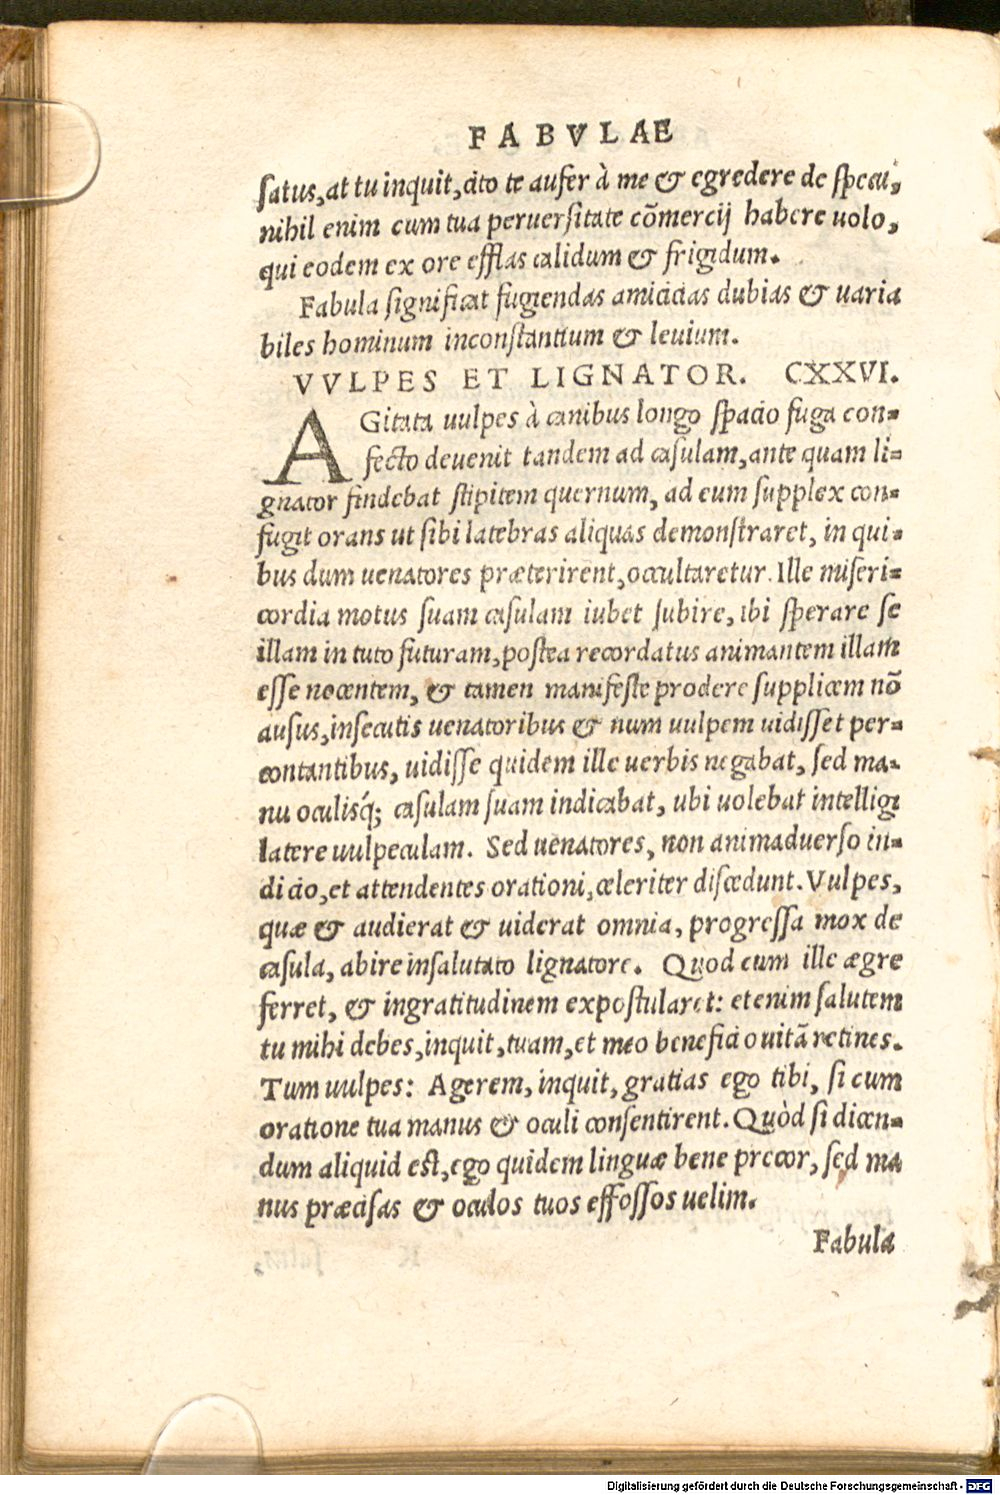 FABVLAE
satus, at tu inquit, cito te aufer à me & egredere de specu,
nihil enim cum tua peruersitate cōmercij habere uolo,
qui eodem ex ore efflas calidum & frigidum.
Fabula significat fugiendas amicicias dubias & uaria
biles hominum inconstantium & leuium.
VVLPES ET LIGNATOR. CXXVI.
AGitata uulpes à canibus longo spacio fuga con=
fecto deuenit tandem ad casulam, ante quam li=
gnator findebat stipitem quernum, ad eum supplex con=
fugit orans ut sibi latebras aliquas demonstraret, in qui=
bus dum uenatores præterirent, occultaretur. Ille miseri=
cordia motus suam casulam iubet subire, ibi sperare se
illam in tuto futuram, postea recordatus animantem illam
esse nocentem, & tamen manifeste prodere supplicem nō
ausus, insecutis uenatoribus & num uulpem uidisset per=
contantibus, uidisse quidem ille uerbis negabat, sed ma=
nu oculisq́; casulam suam indicabat, ubi uolebat intelligi
latere uulpeculam. Sed uenatores, non animaduerso in=
dicio, et attendentes orationi, celeriter discedunt. Vulpes,
quæ & audierat & uiderat omnia, progressa mox de
casula, abire insalutato lignatore. Quod cum ille ægre
ferret, & ingratitudinem expostularet: etenim salutem
tu mihi debes, inquit, tuam, et meo beneficio uitā retines.
Tum uulpes: Agerem, inquit, gratias ego tibi, si cum
oratione tua manus & oculi consentirent. Quòd si dicen=
dum aliquid est, ego quidem linguæ bene precor, sed ma
nus præcisas & oculos tuos effossos uelim.
Fabula
Digitalisierung gefördert durch die Deutsche Forschungsgemeinschaft - DFG